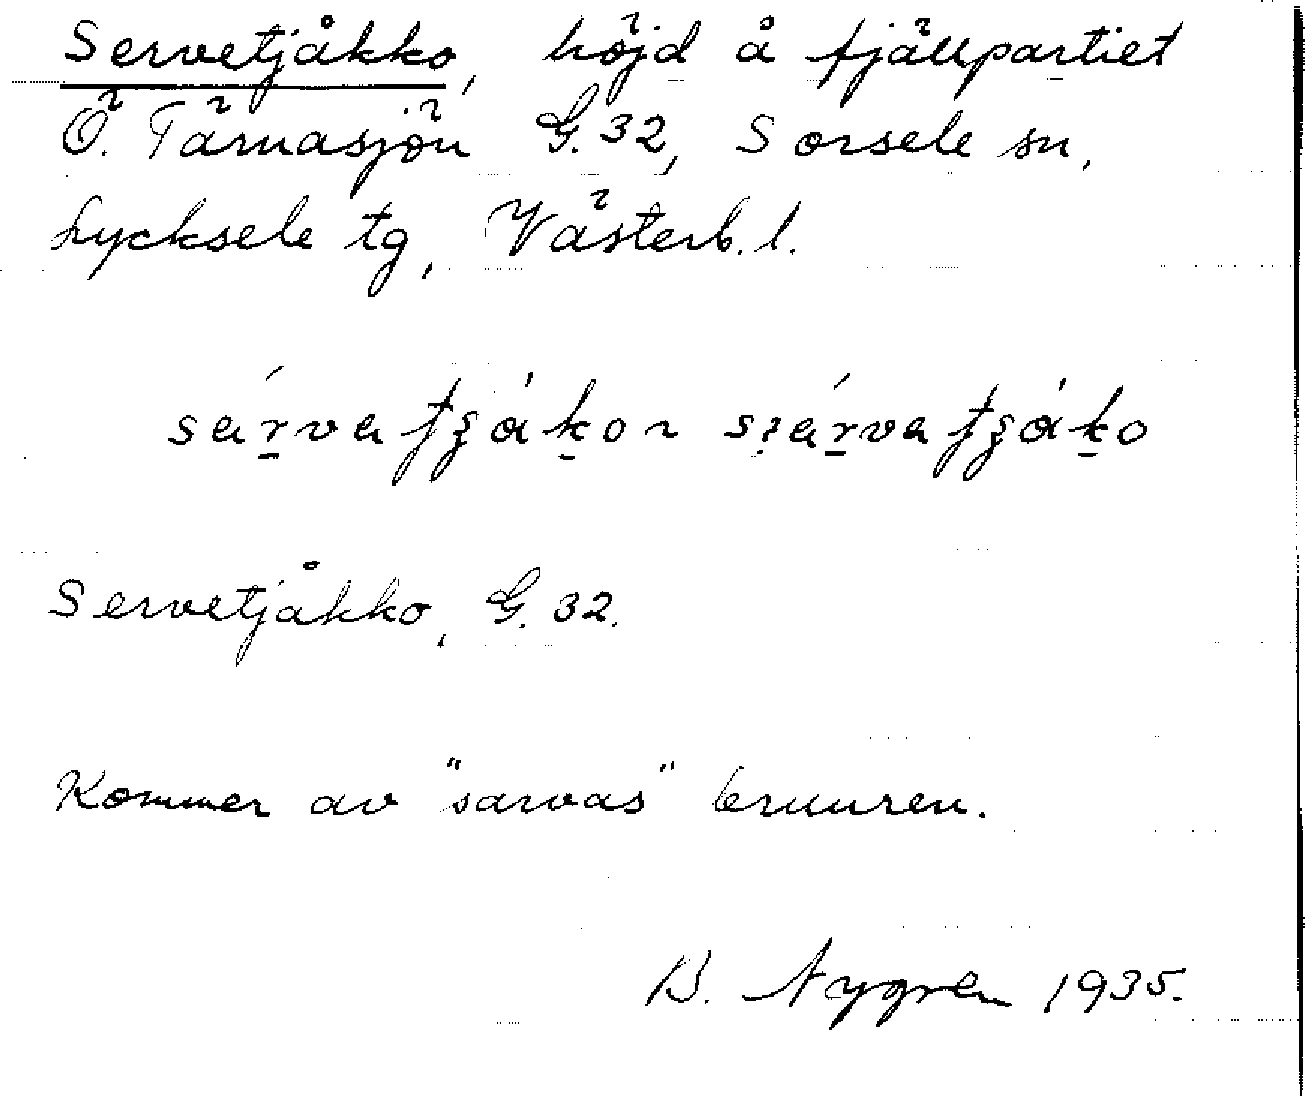 Servetjåkko, höjd å fjällpartiet
Ö. Tärnasjön G. 32, Sorsele sn,
Lycksele tg, Västerb. l.
Servetjåkko, G. 32.
Kommer av "sarvas" brunren.
B. Nygren 1935.